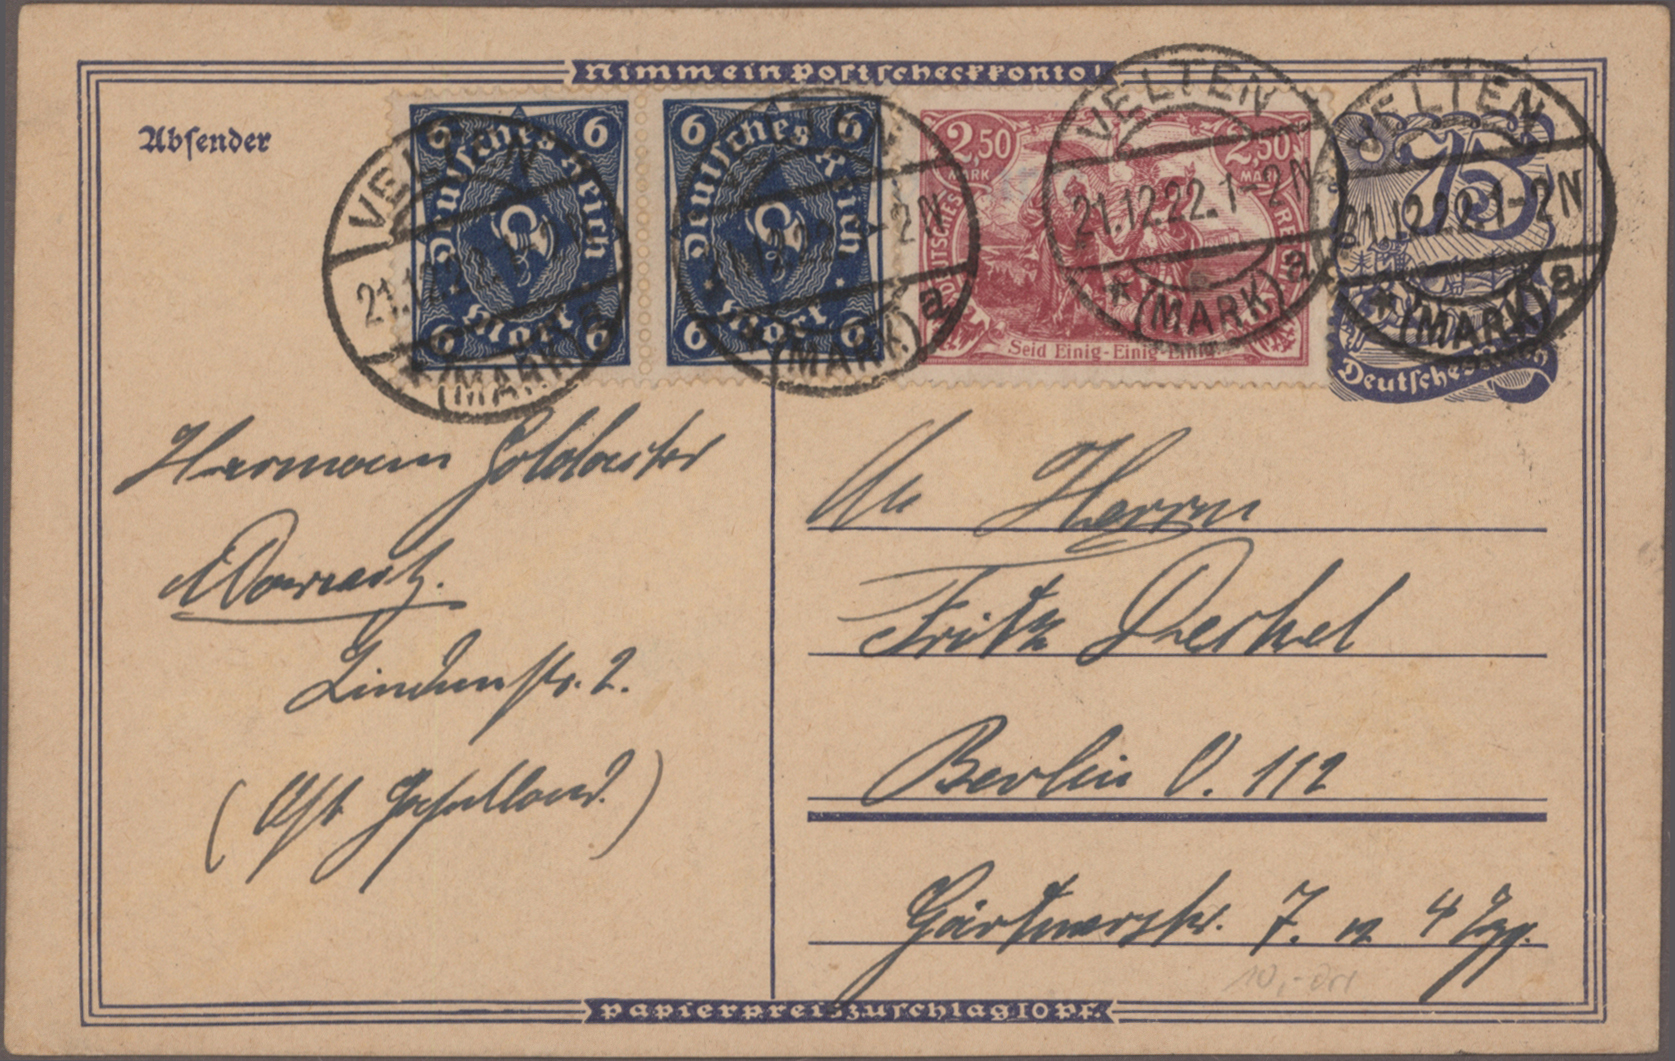 Nimm ein Postscheckkonto!
Absender
6 6
Deutsches Reich
Mark
6 6
6 6
Deutsches Reich
Mark
6 6
2,50 MARK 2,50 MARK
DEUTSCHES REICH
Seid Einig-Einig-Einig
75
Deutsches Reich
VELTEN
21.12.22.1-2N
(MARK)
VELTEN
2N
* (MARK) a
VELTEN
21.12.22.1-2N
* (MARK) a
VELTEN
21.12.22.1-2N
* (MARK) a
Hermann
Lindenstr. 2.
An Herrn
Fritz
Berlin O. 112
Gärtnerstr. 7. 4
Papierpreiszuschlag 10 Pf.